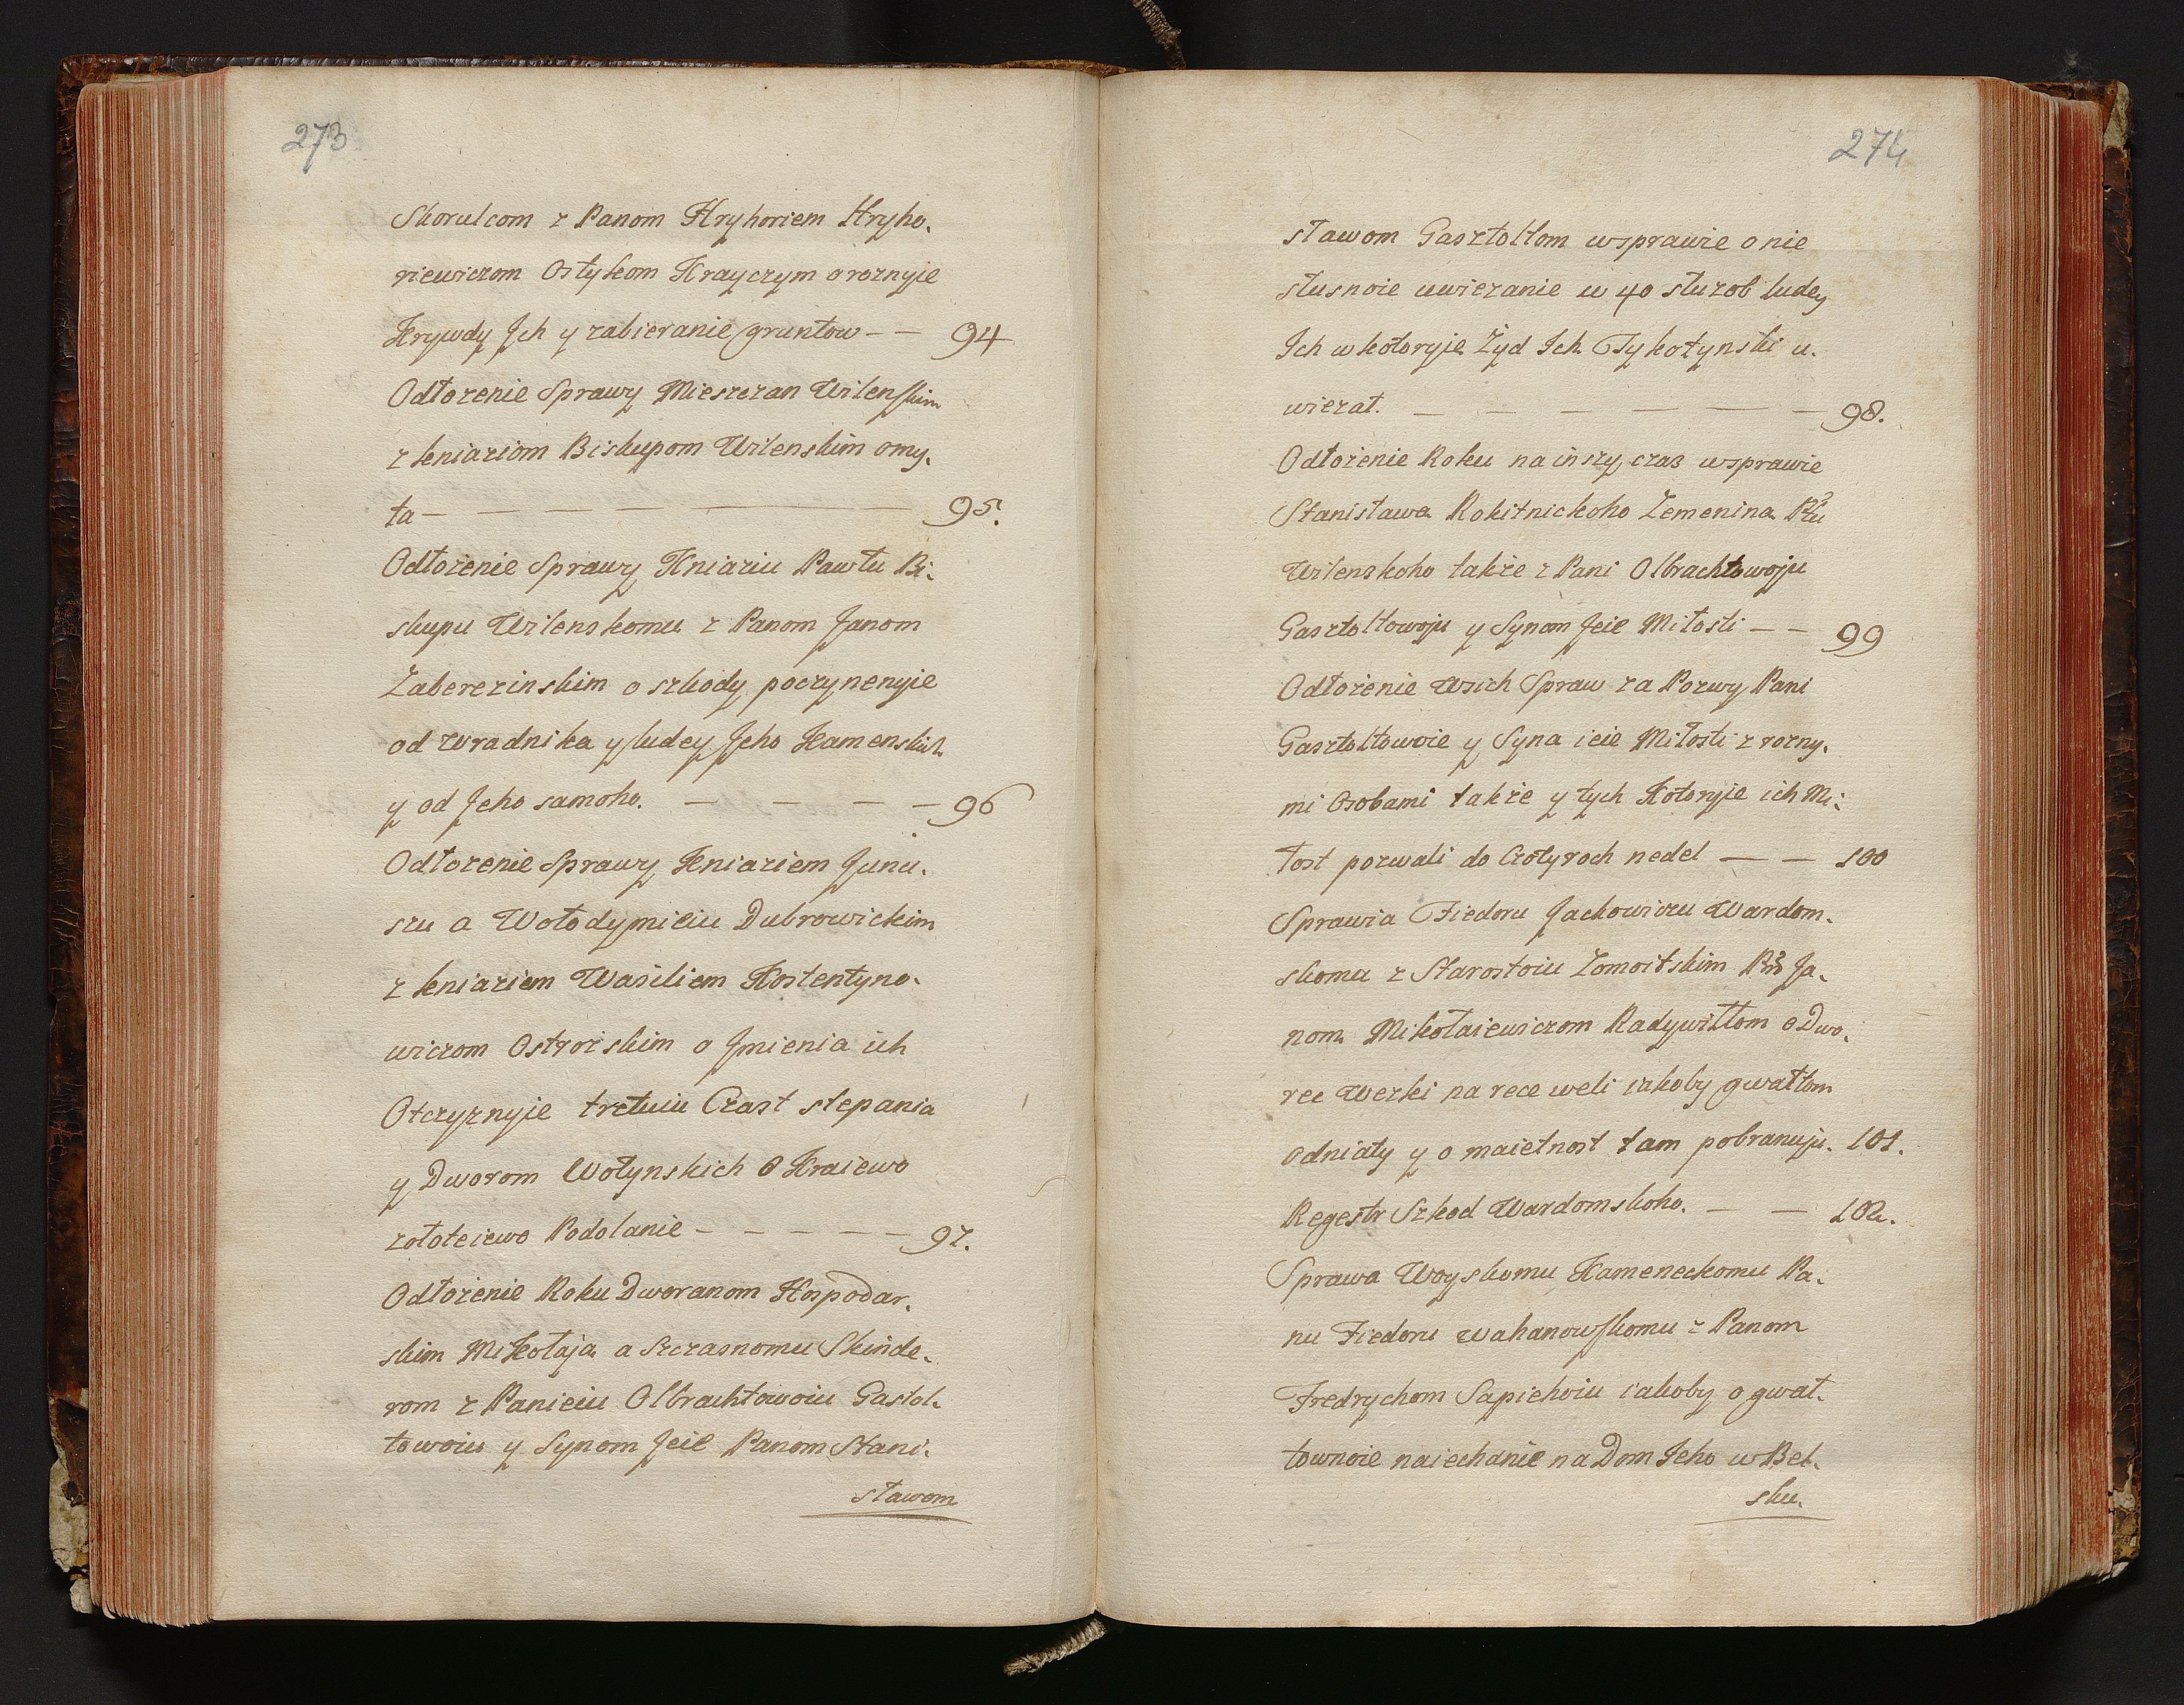 273
Skorulcom z Panom Hryhoriem Hryho.
riewiczom Ostykom Krayczym o roznyje
Krywdy Jch y zabieranie gruntow — — 94
Odłozenie Sprawy Mieszczan Wilenskim
z kniaziom Biskupom Wilenskim o my.
ta — — — — — — — 95.
Odłożenie Sprawy Kniaziu Pawłu Bi.
skupu Wilenskomu z Panom Janom
Zaberezinskim o szkody poczynenyie
od Wradnika y ludey Jeho Kamenskich
y od Jeho samoho. — — — — 96
Odłozenie Sprawy Kniaziem Janu.
szu a Wołodymieiu Dubrowickim
z kniaziem Wasiliem Kostentyno.
wiczom Ostrożskim o Jmienia ich
Otczyznyie tretuiu Czast stepania
y Dworom Wołynskich O Kraiewo
zołoteiewo Podolanie — — — — — 97.
Odłożenie Roku Dworanom Hospodar.
skim Mikołaja a Szczasnomu Skinde.
rom z Panieiu Olbrachtowoiu Gastol.
towoiu y Synom Jeie Panom Stani.
sławom
274
sławom Gasztołtom wsprawie o nie
słusnoie uwiezanie w 40 słuzob ludey
Ich w kotoryie Żyd Ich Tykotynski u.
wiezał. — — — — — — 98.
Odłożenie Roku na inszy czas wsprawie
Stanisława Rokitnickoho Zemenina Ptu
Wilenskoho także z Pani Olbrachtowoju
Gasztołtowoju y Synom Jeie Miłosti — — 99
Odłożenie Wsich Spraw za Pozwy Pani
Gasztołtowoie y Syna ieie Miłosti z rozny.
mi Osobami także y tych Kotoryie ich Mi.
łost pozwali do Czotyroch nedel — — 100
Sprawia Fiedoru Jackowiczu Wardom.
skomu z Starostoiu Zomoitskim Pm̃ Ja.
nom Mikołaiewiczom Radywiłłom o Dwo.
rec Werki na rece weli iakoby gwałtom
odniaty y o maietnost tam pobranuju. 101.
Regestr Szkod Wardomskoho. — — 102.
Sprawa Woyskomu Kameneckomu Pa.
nu Fiedoru Wahanowskomu z Panom
Fredrychom Sapiehoiu iakoby o gwał.
townoie naiechanie na Dom Jeho w Bel.
sku.